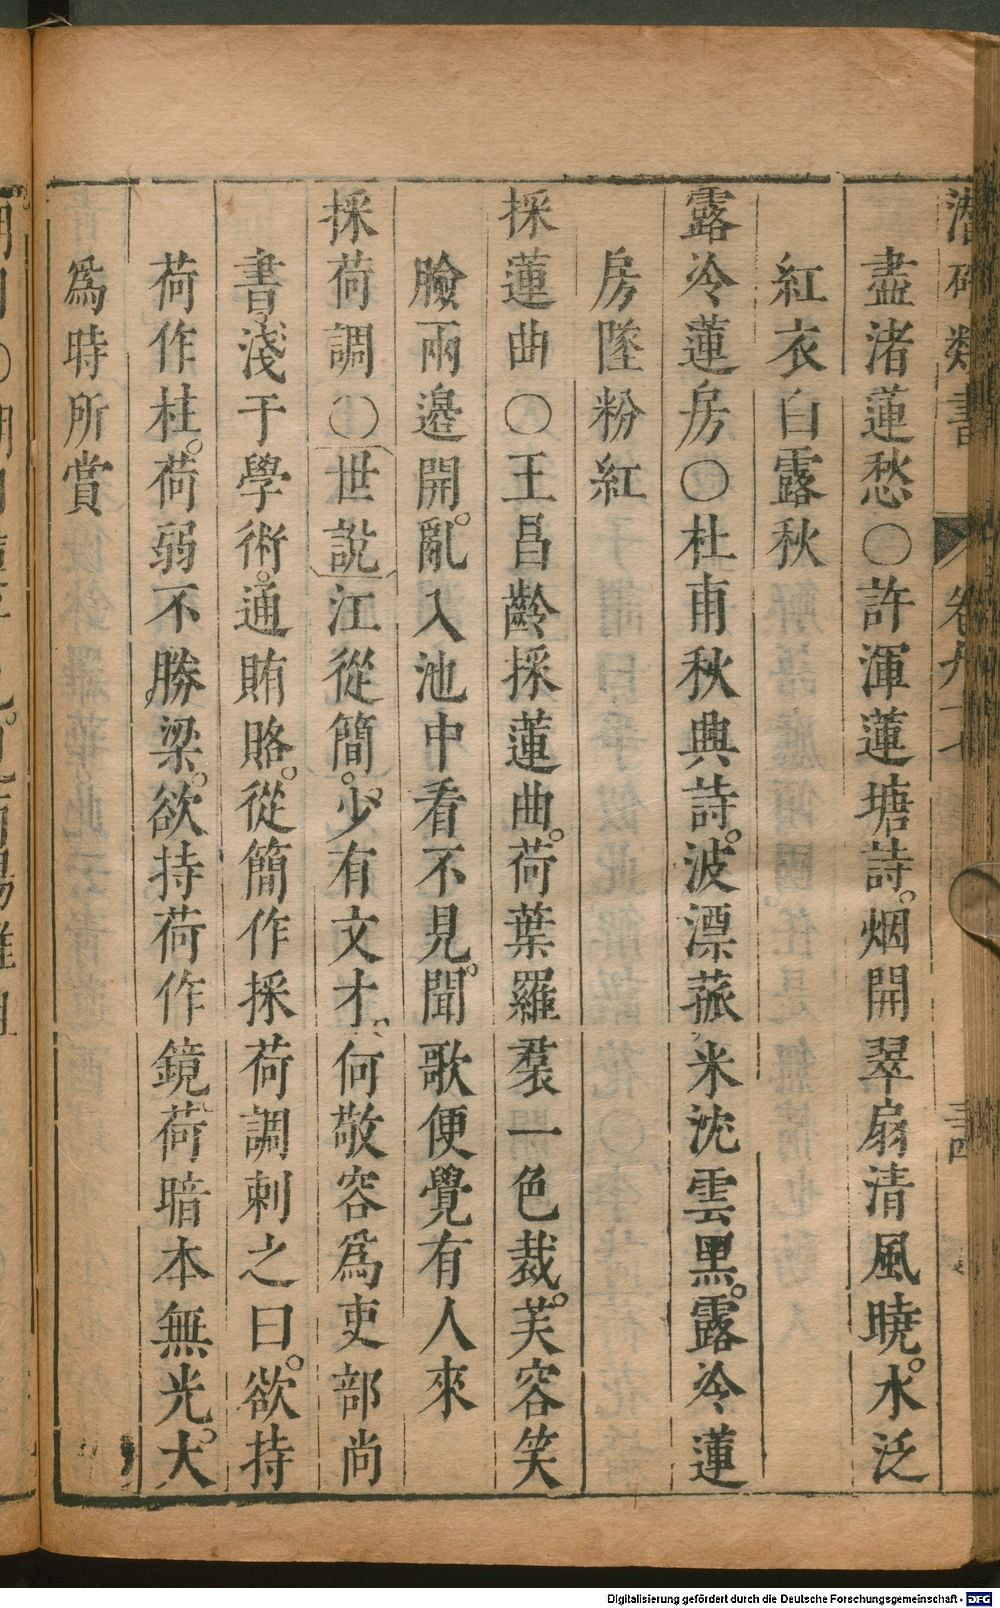 潛確類書 卷九十七 三十四
盡渚蓮愁○許渾蓮塘詩。烟開翠扇清風曉。水泛
紅衣白露秋
露冷蓮房○杜甫秋興詩。波漂菰米沈雲黑。露冷蓮
房墜粉紅
採蓮曲○王昌齡採蓮曲。荷葉羅裠一色裁。芙容笑
臉兩邊開。亂入池中看不見。聞歌便覺有人來
採荷調○世說江從簡。少有文才。何敬容爲吏部尚
書淺于學術。通賄賂。從簡作採荷調刺之曰。欲持
荷作柱。荷弱不勝梁。欲持荷作鏡荷暗本無光。大
爲時所賞
Digitalisierung gefördert durch die Deutsche Forschungsgemeinschaft - DFG